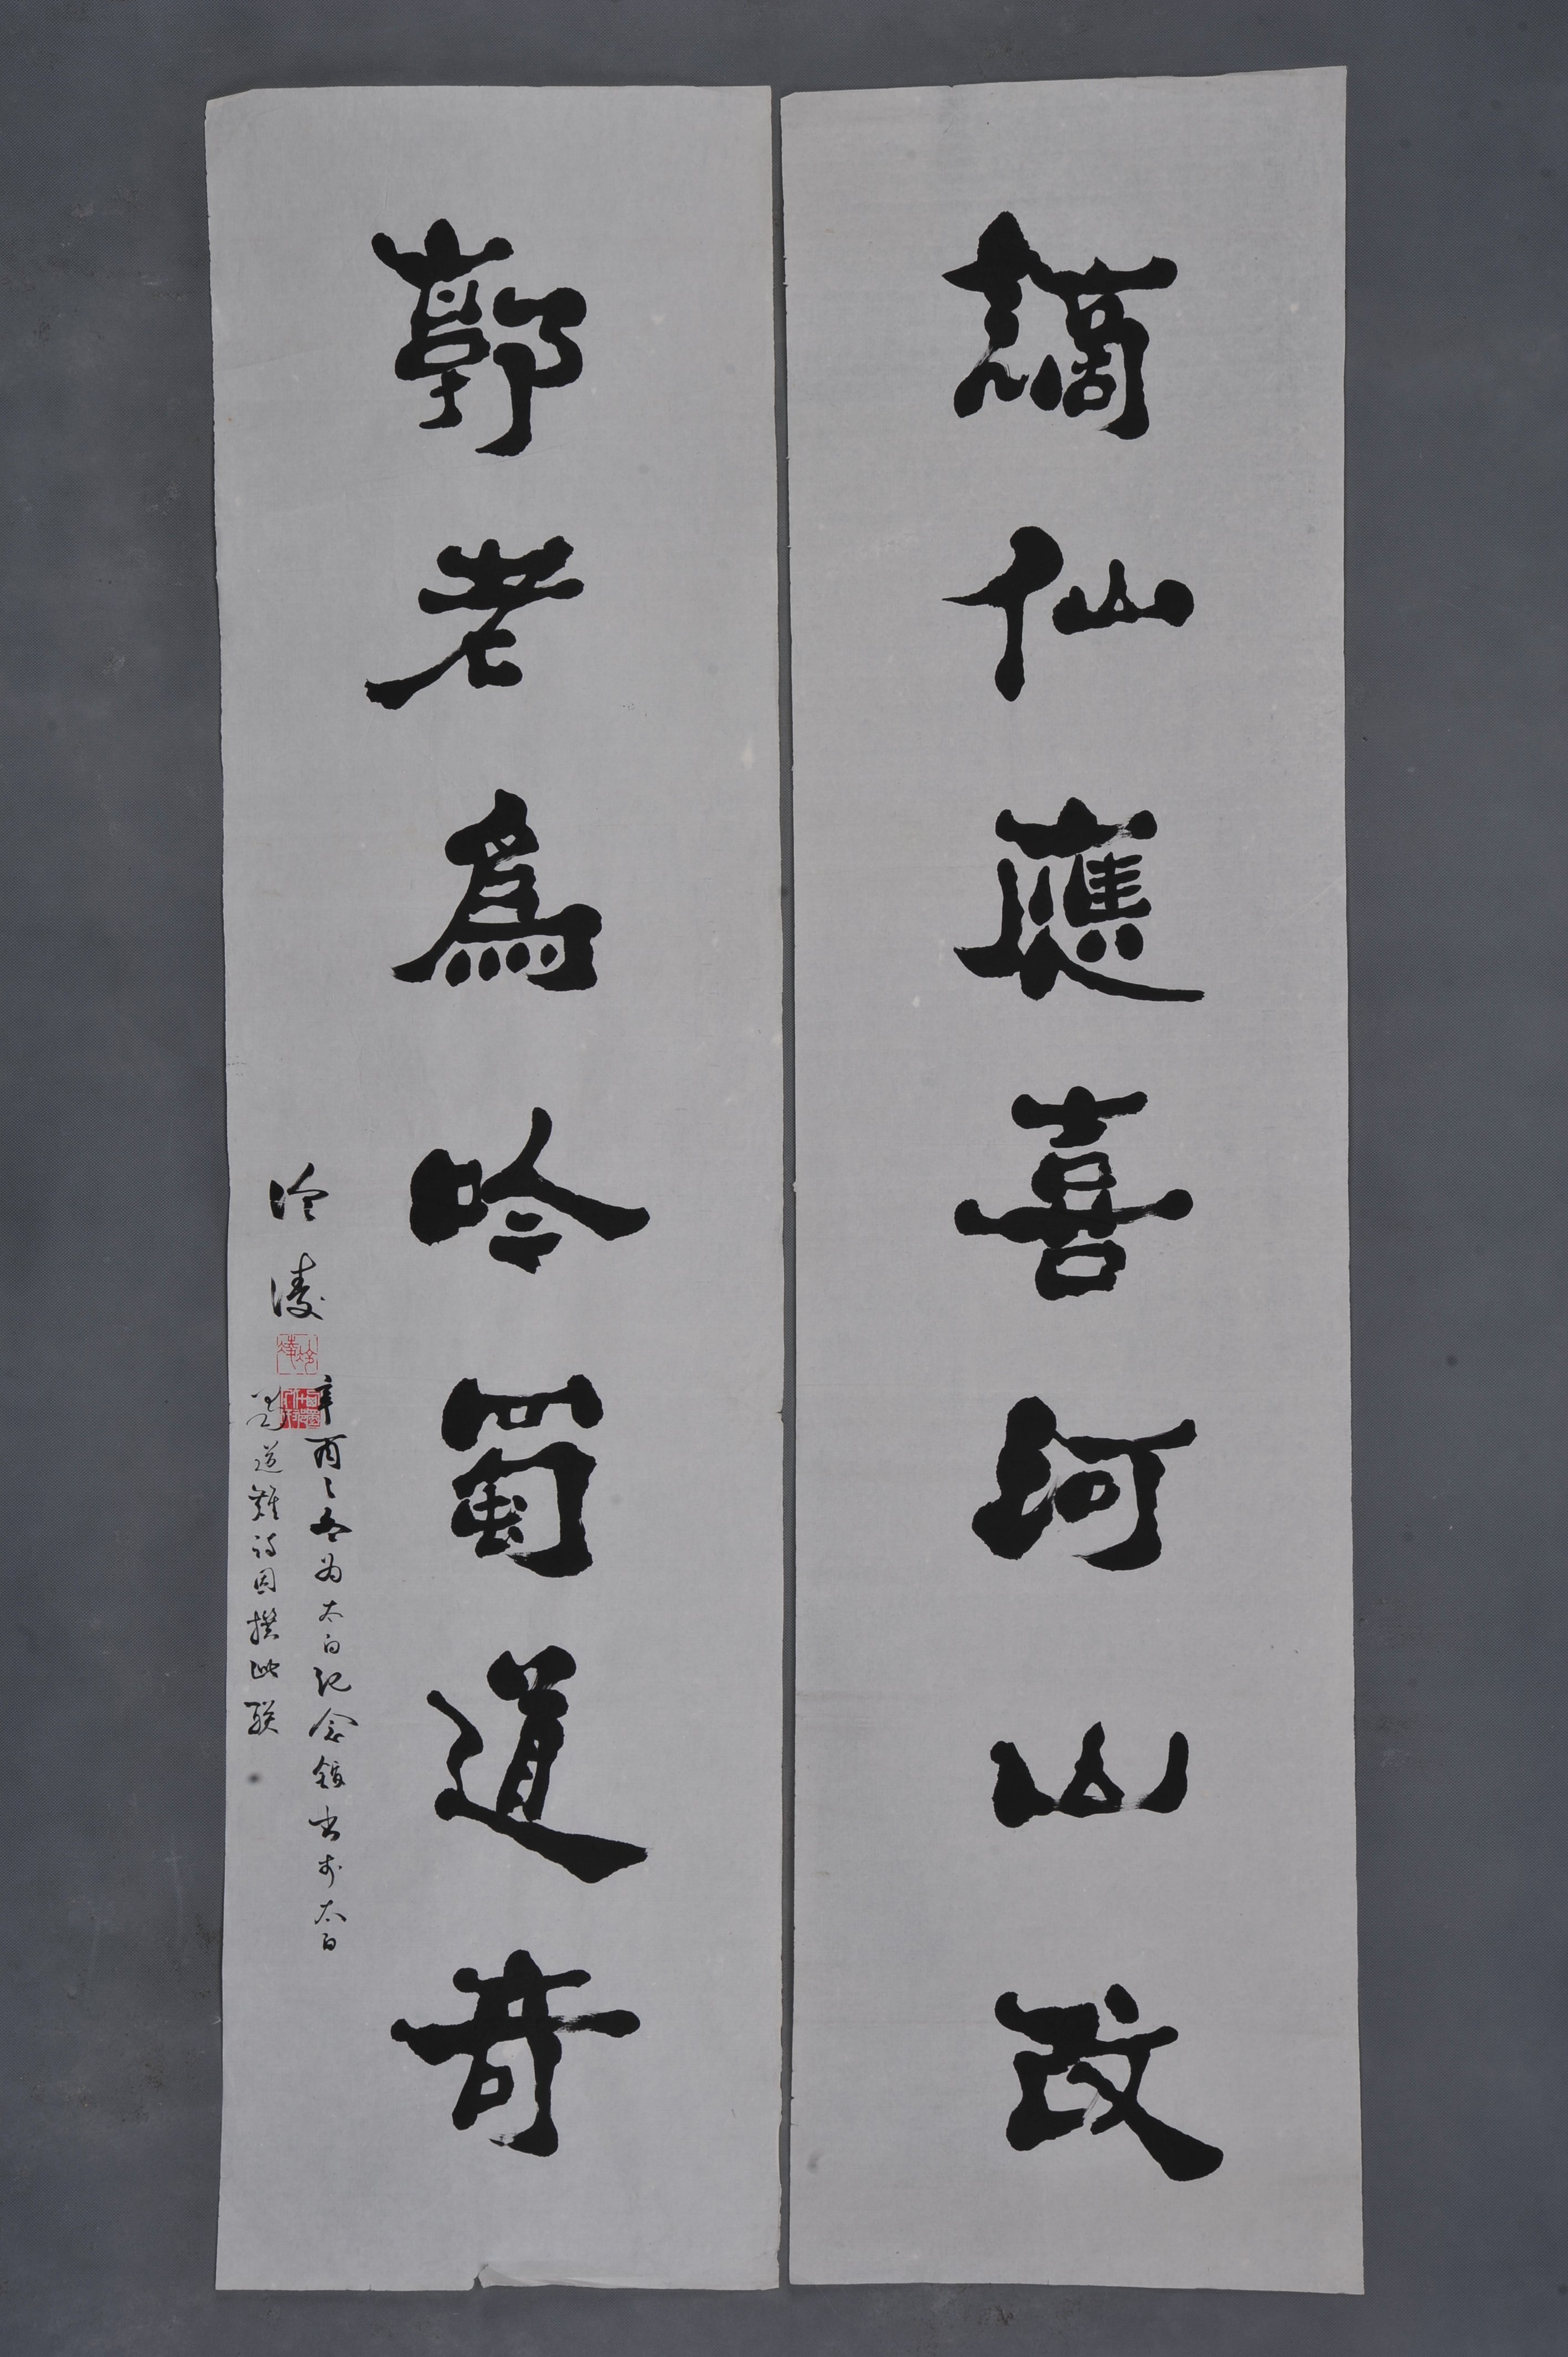 謫仙應喜河山改
郭老為吟蜀道奇
辛酉之冬为太白纪念馆书于太白
蜀道难诗因撰此联